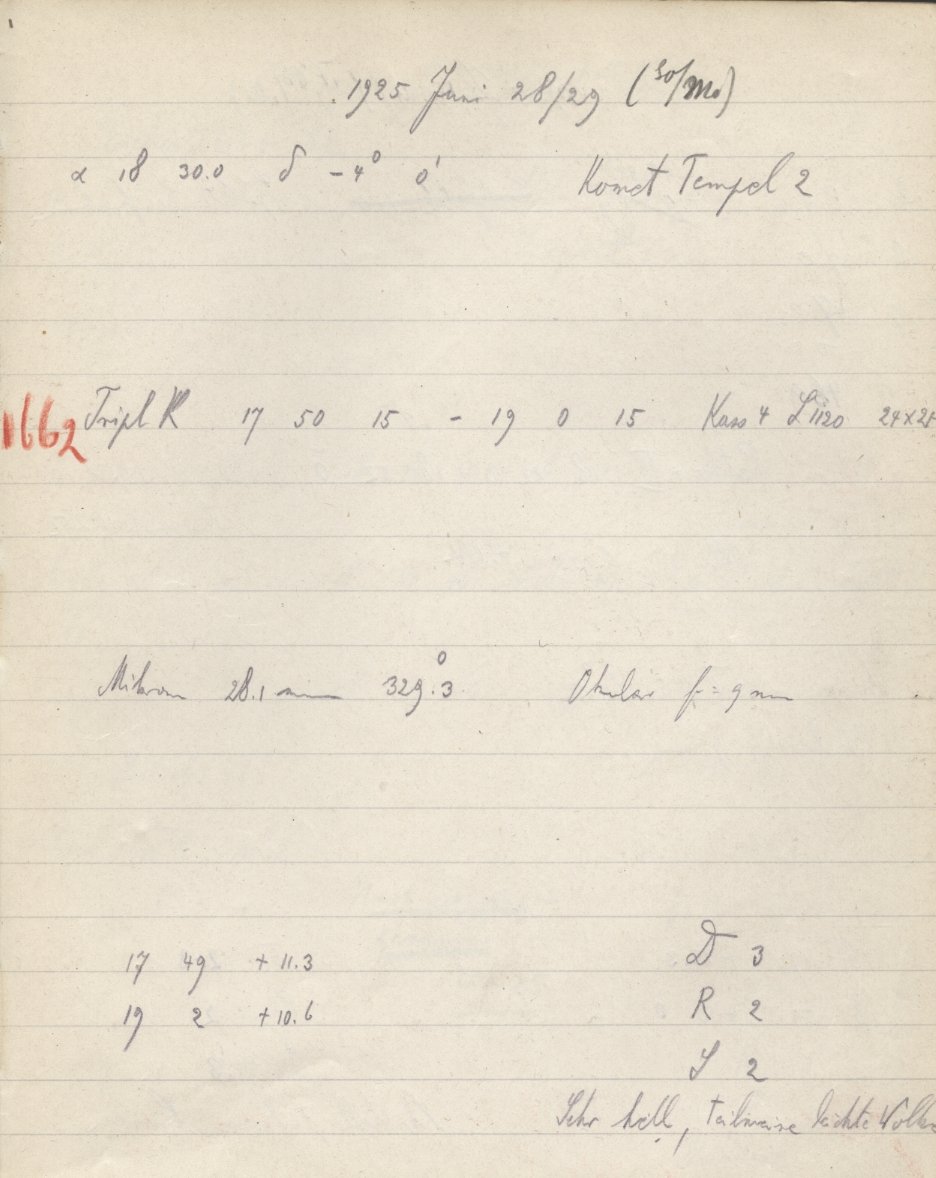 1925 Juni 28/29 (So/Mo)
α 18 30.0 δ -4° 0' Komet Tempel 2
1662 Tripl K 17 50 15 - 19 0 15 Kass 4 L 1120 24×25
Mikrom 28.1 mm 329.3° Okular f = 9 mm
17 49 + 11.3 D 3
19 2 + 10.6 R 2
S 2
Sehr hell, teilweise leichte Wolke